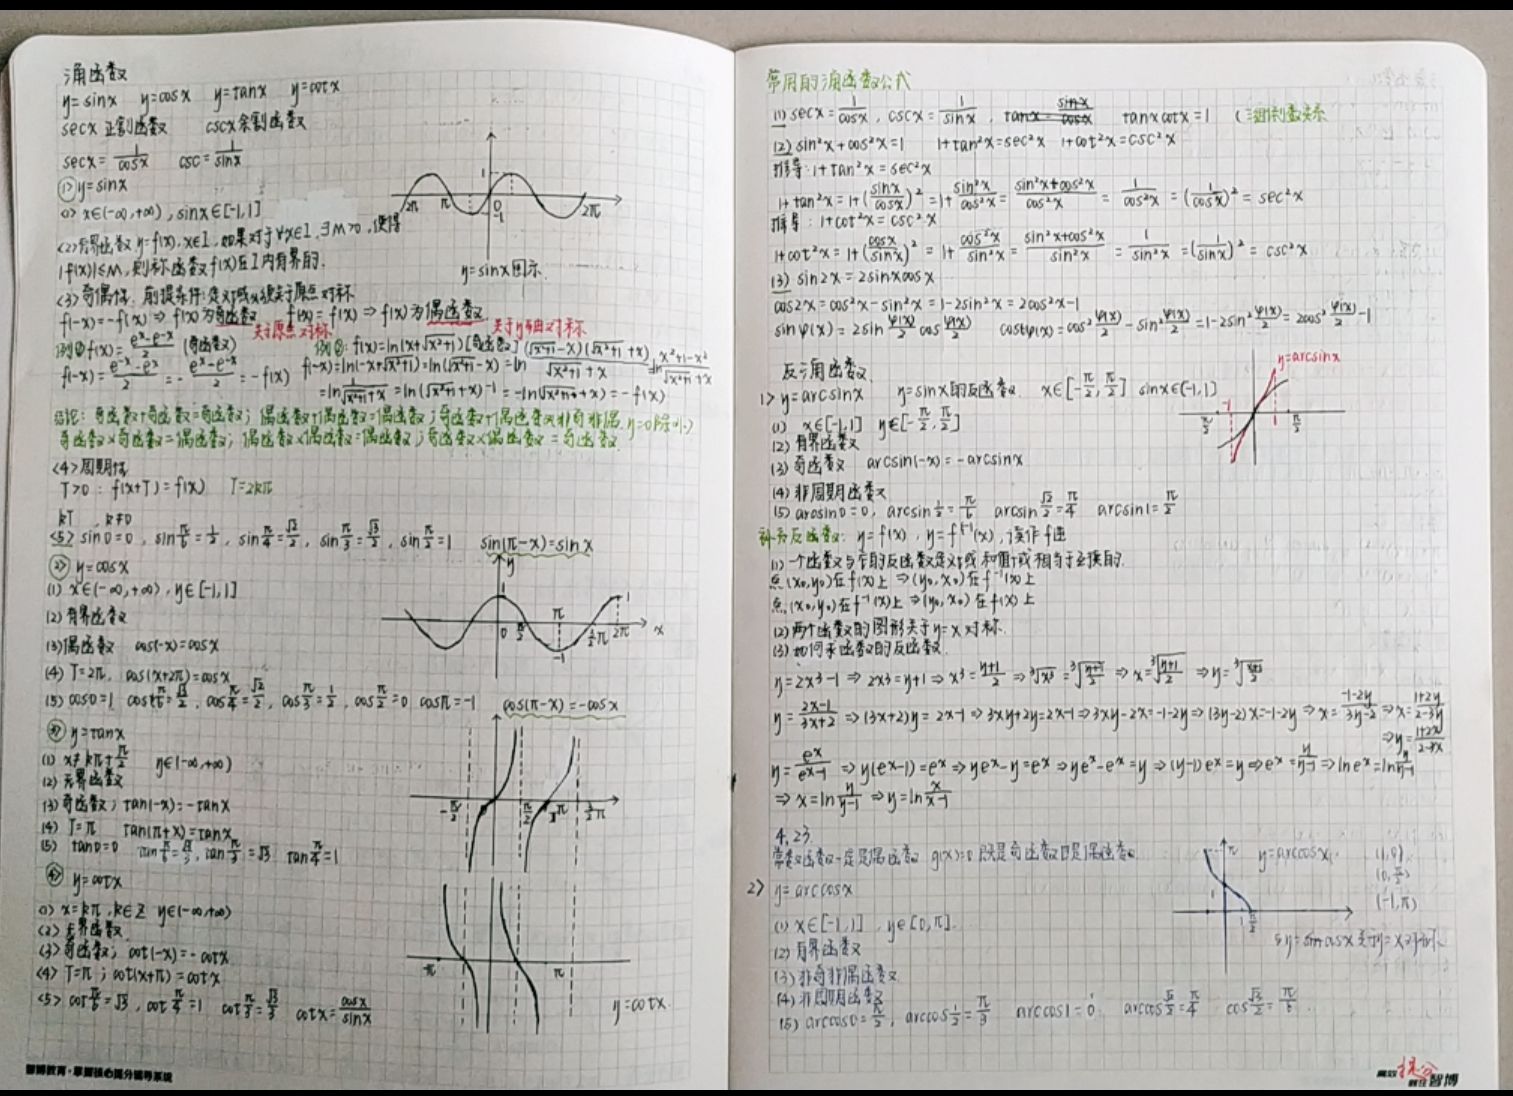 三角函数
y=sinx y=cosx y=tanx y=cotx
secx 正割函数 cscx 余割函数
secx=1/cosx csc=1/sinx
① y=sinx
<1> x∈(-∞,+∞), sinx∈[-1,1]
<2> 有界函数 y=f(x), x∈I, 如果对于∀x∈I, ∃M>0, 使得
|f(x)|≤M, 则称函数f(x)在I内有界的.
y=sinx图示
<3> 奇偶性. 前提条件: 定义域必须关于原点对称
f(-x)=-f(x) ⇒ f(x)为奇函数 f(-x)=f(x) ⇒ f(x)为偶函数
关于原点对称 关于y轴对称
例① f(x)=(e^x-e^-x)/2 (奇函数) 例②: f(x)=ln(x+√(x²+1)) [奇函数]
f(-x)=(e^-x-e^x)/2=-(e^x-e^-x)/2=-f(x) f(-x)=ln(-x+√(x²+1))=ln(√(x²+1)-x)=ln (√(x²+1)-x)(√(x²+1)+x)/(√(x²+1)+x)=ln (x²+1-x²)/(√(x²+1)+x)
=ln 1/(√(x²+1)+x)=ln(√(x²+1)+x)-1=-ln(√(x²+1)+x)=-f(x)
结论: 奇函数+奇函数=奇函数; 偶函数+偶函数=偶函数; 奇函数+偶函数=非奇非偶. y=0除外.)
奇函数×奇函数=偶函数; 偶函数×偶函数=偶函数; 奇函数×偶函数=奇函数
<4> 周期性
T>0: f(x+T)=f(x) T=2kπ
kT, k≠0
<5> sin0=0, sinπ/6=1/2, sinπ/4=√2/2, sinπ/3=√3/2, sinπ/2=1 sin(π-x)=sinx
② y=cosx
(1) x∈(-∞,+∞), y∈[-1,1]
(2) 有界函数
(3) 偶函数 cos(-x)=cosx
(4) T=2π, cos(x+2π)=cosx
(5) cos0=1 cosπ/6=√3/2, cosπ/4=√2/2, cosπ/3=1/2, cosπ/2=0 cosπ=-1 cos(π-x)=-cosx
③ y=tanx
(1) x≠kπ+π/2 y∈(-∞,+∞)
(2) 无界函数
(3) 奇函数; tan(-x)=-tanx
(4) T=π tan(π+x)=tanx
(5) tan0=0 tanπ/6=√3/3, tanπ/3=√3 tanπ/4=1
④ y=cotx
<1> x=kπ, k∈Z y∈(-∞,+∞)
<2> 无界函数
<3> 奇函数; cot(-x)=-cotx
<4> T=π; cot(x+π)=cotx
<5> cotπ/6=√3, cotπ/4=1 cotπ/3=√3/3 cotx=cosx/sinx
y=cotx.
常用的三角函数公式
(1) secx=1/cosx, cscx=1/sinx, tanx=sinx/cosx tanxcotx=1 (三组倒数关系
(2) sin²x+cos²x=1 1+tan²x=sec²x 1+cot²x=csc²x
推导: 1+tan²x=sec²x
1+tan²x=1+(sinx/cosx)²=1+sin²x/cos²x=(sin²x+cos²x)/cos²x=1/cos²x=(1/cosx)²=sec²x
推导: 1+cot²x=csc²x
1+cot²x=1+(cosx/sinx)²=1+cos²x/sin²x=(sin²x+cos²x)/sin²x=1/sin²x=(1/sinx)²=csc²x
(3) sin2x=2sinxcosx
cos2x=cos²x-sin²x=1-2sin²x=2cos²x-1
sinφ(x)=2sinφ(x)/2 cosφ(x)/2 cosφ(x)=cos²φ(x)/2-sin²φ(x)/2=1-2sin²φ(x)/2=2cos²φ(x)/2-1
反三角函数
1> y=arcsinx y=sinx的反函数 x∈[-π/2,π/2] sinx∈[-1,1]
y=arcsinx
(1) x∈[-1,1] y∈[-π/2,π/2]
(2) 有界函数
(3) 奇函数 arcsin(-x)=-arcsinx
(4) 非周期函数
(5) arcsin0=0, arcsin1/2=π/6 arcsin√2/2=π/4 arcsin1=π/2
补充反函数: y=f(x), y=f^-1(x), 读作f逆
(1) 一个函数与它的反函数定义域和值域相当于互换的.
点(x₀,y₀)在f(x)上 ⇒(y₀,x₀)在f^-1(x)上
点(x₀,y₀)在f^-1(x)上 ⇒(y₀,x₀)在f(x)上
(2) 两个函数的图形关于y=x对称.
(3) 如何求函数的反函数.
y=2x³-1 ⇒ 2x³=y+1 ⇒ x³=(y+1)/2 ⇒ ³√x³=³√((y+1)/2) ⇒ x=³√((y+1)/2) ⇒ y=³√((x+1)/2)
y=(2x-1)/(3x+2) ⇒ (3x+2)y=2x-1 ⇒ 3xy+2y=2x-1 ⇒ 3xy-2x=-1-2y ⇒ (3y-2)x=-1-2y ⇒ x=(-1-2y)/(3y-2) ⇒ x=(1+2y)/(2-3y)
⇒ y=(1+2x)/(2-3x)
y=e^x/(e^x-1) ⇒ y(e^x-1)=e^x ⇒ ye^x-y=e^x ⇒ ye^x-e^x=y ⇒ (y-1)e^x=y ⇒ e^x=y/(y-1) ⇒ lne^x=ln y/(y-1)
⇒ x=ln y/(y-1) ⇒ y=ln x/(x-1)
4.23
常数函数一定是偶函数 g(x)=0 既是奇函数又是偶函数
y=arccosx. (1,0)
(0,π/2)
(-1,π)
2> y=arccosx
(1) x∈[-1,1], y∈[0,π].
与y=cosx关于y=x对称.
(2) 有界函数
(3) 非奇非偶函数
(4) 非周期函数
(5) arccos0=π/2, arccos1/2=π/3 arccos1=0 arccos√2/2=π/4 cos√3/2=π/6